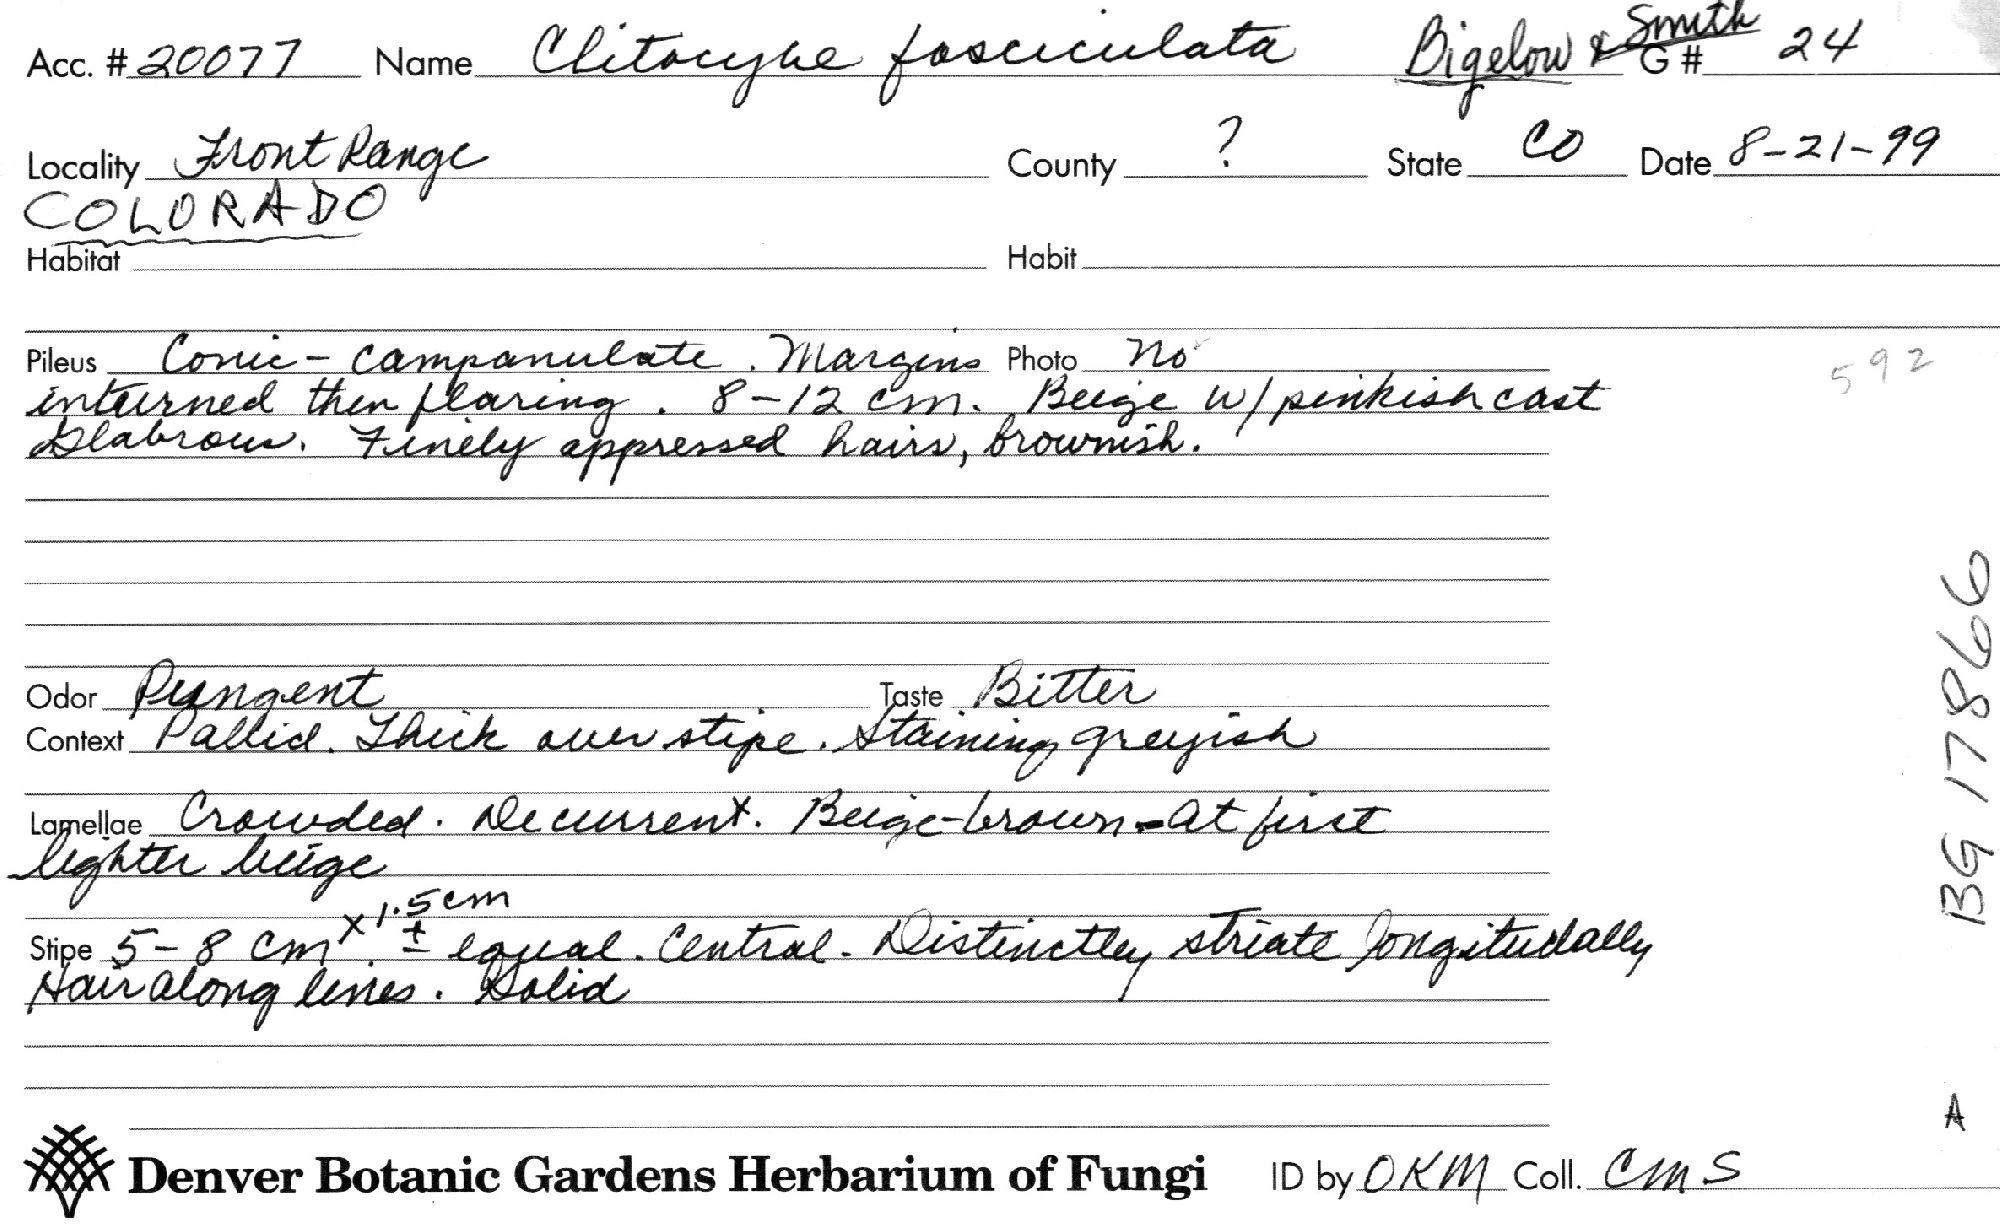 Acc. # 20077 Name Clitocybe fasciculata Bigelow & Smith G # 24
Locality Front Range County ? State CO Date 8-21-99
COLORADO
Habitat Habit
Pileus Conic - campanulate. Margins Photo No
inturned then flaring. 8-12 cm. Beige w/ pinkish cast 592
Glabrous. Finely appressed hairs, brownish.
Odor Pungent Taste Bitter
Context Pallid. Thick over stipe. Staining greyish
Lamellae Crowded. Decurrent. Beige-brown - at first
lighter beige
Stipe 5-8 cm x 1.5 cm ± equal. Central. Distinctley striate longitudally
Hair along lines. Solid
BG 17866
A
Denver Botanic Gardens Herbarium of Fungi ID by OKM Coll. CMS